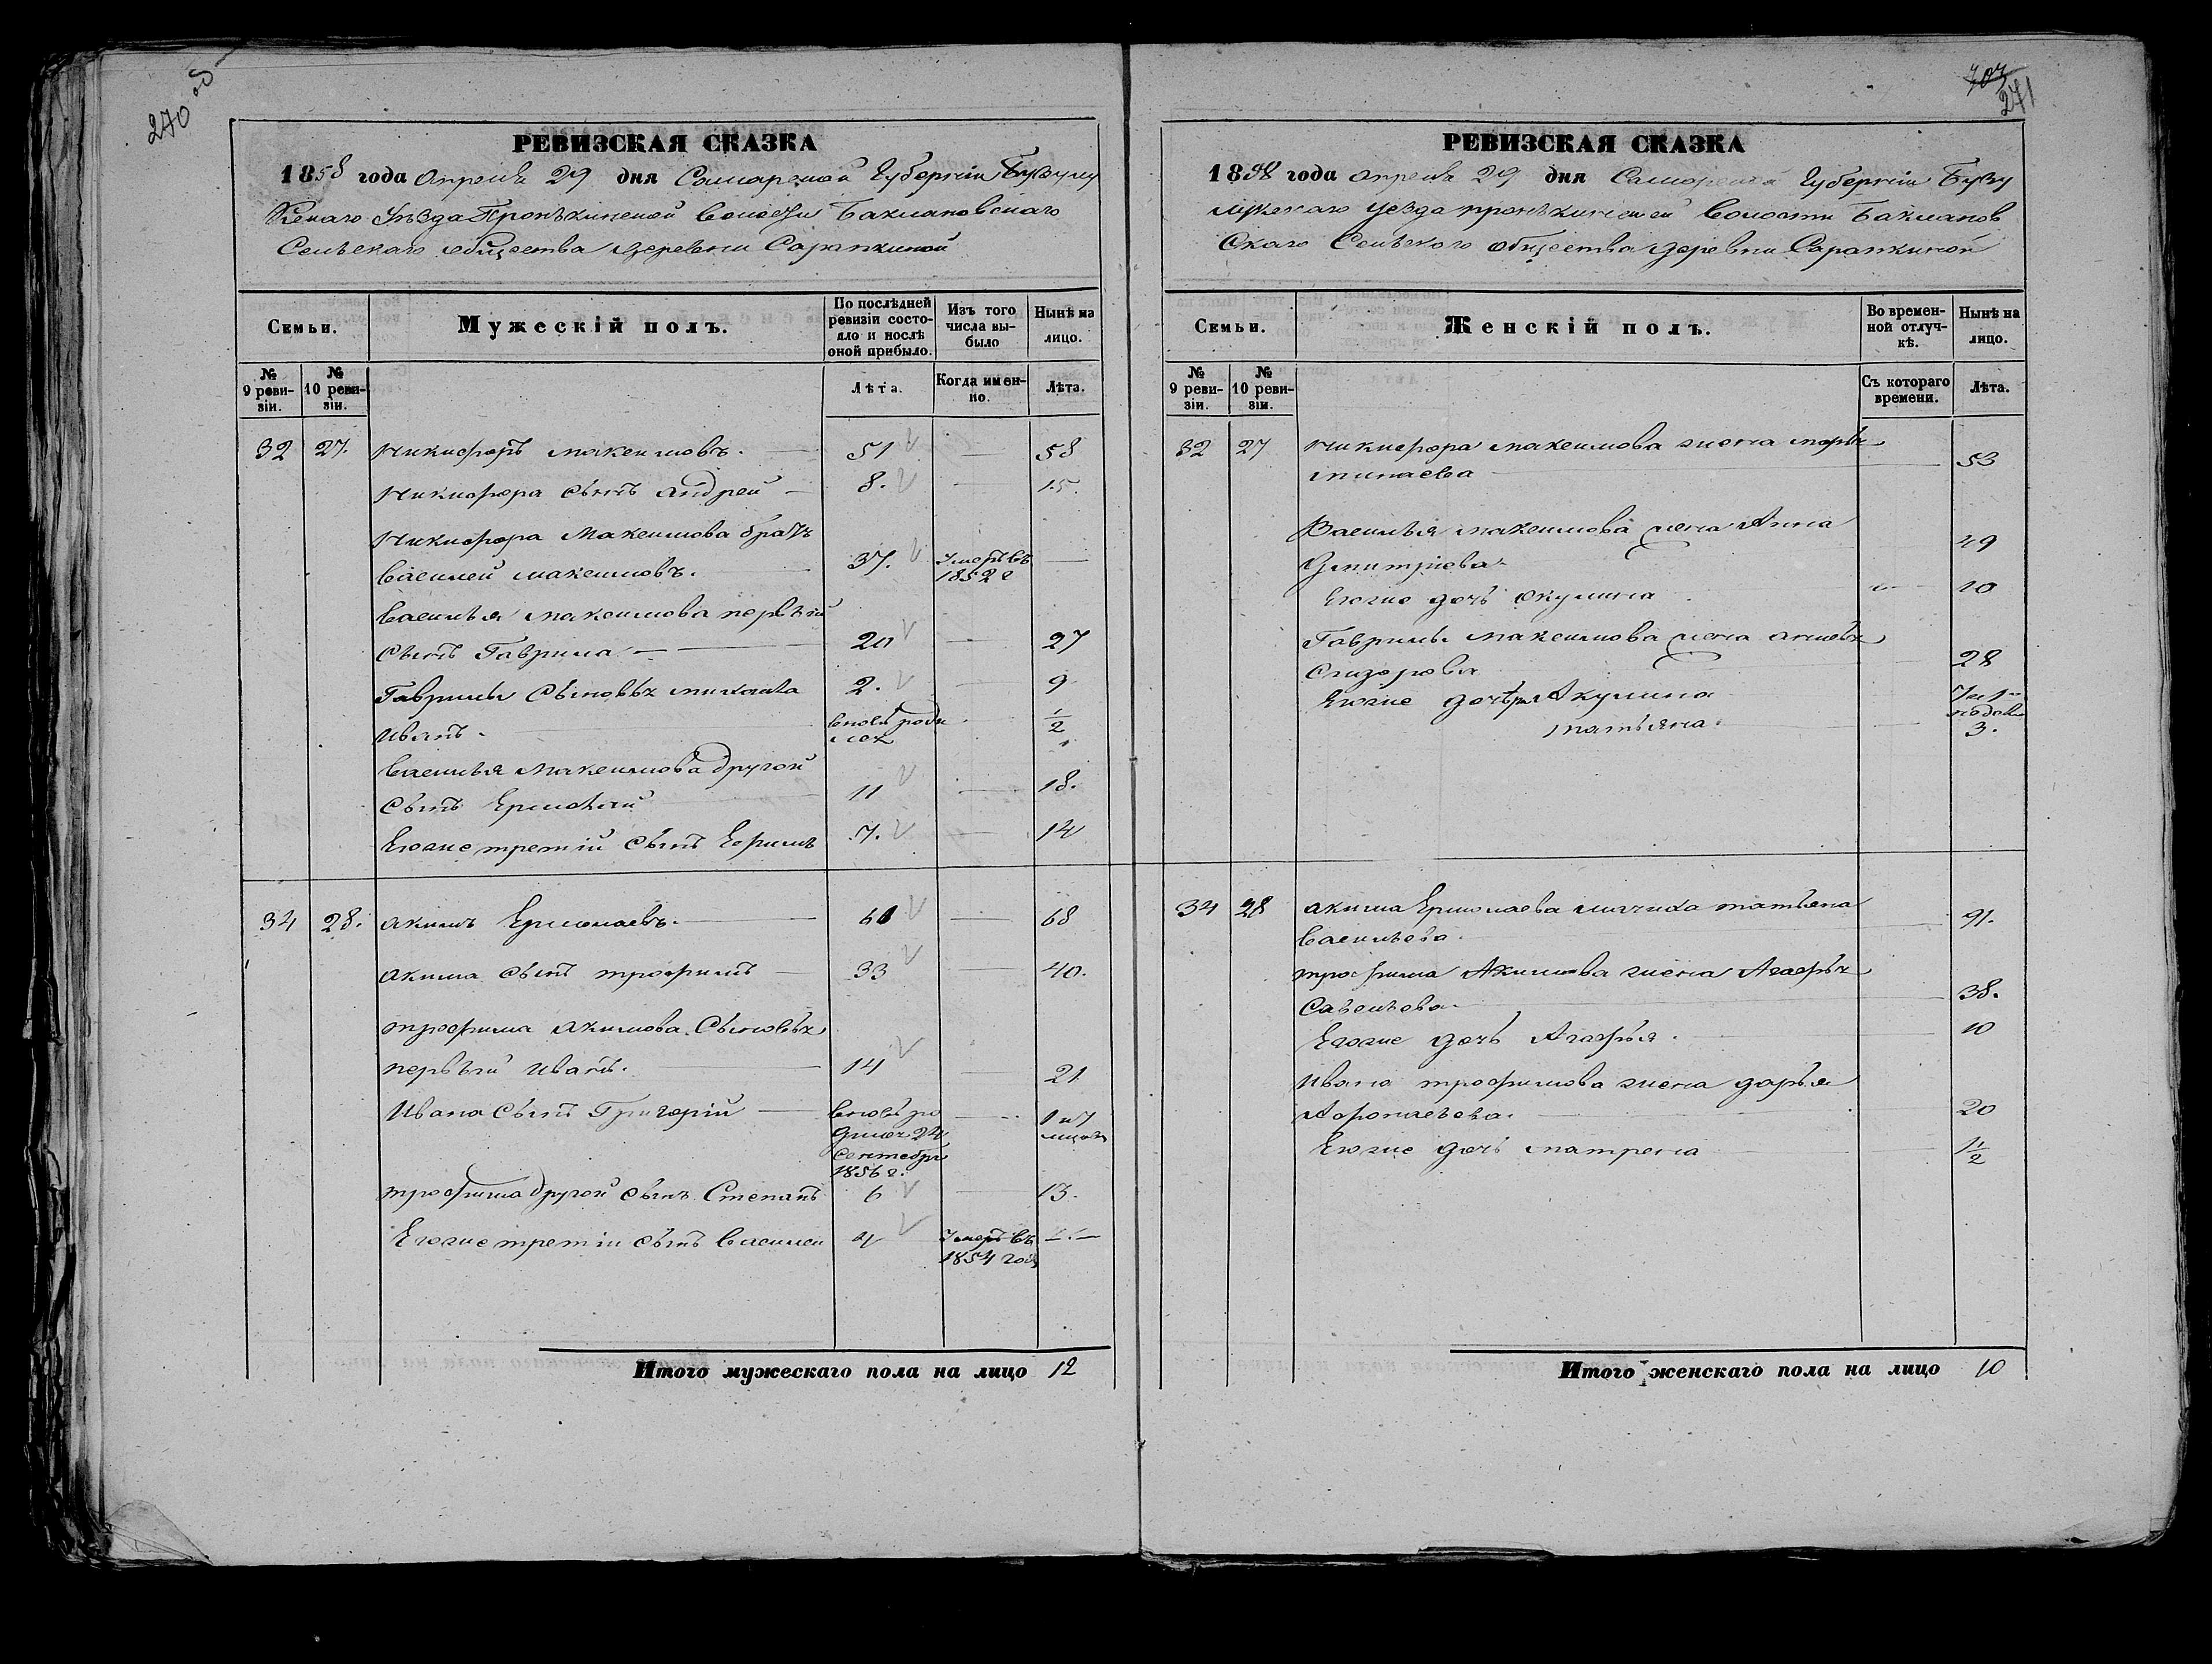 270 об
РЕВИЗСКАЯ СКАЗКА
1858 года Апреля 29 дня Самарской Губернiи Бузулу
кскаго Уѣзда Пронькинской Волости Баклановскаго
Сельскаго общества деревни Сарапкиной
Семьи.
Мужескiй полъ.
По послѣдней ревизiи состо-
яло и послѣ
оной прибыло.
Изъ того
числа вы-
было
Нынѣ на
лицо.
№
9 реви-
зiи.
№
10 реви-
зiи.
Лѣта.
Когда имен-
но.
Лѣта.
32 27. Никифоръ Максимовъ. 51 — 58
Никифора сынъ Андрей — 8. — 15.
Никифора Максимова братъ
Василей Максимовъ. 37. Умеръ въ 1852 г —
Василья Максимова первый
сынъ Гаврила — 20 — 27
Гаврилы сыновья 2. — 9
Иванъ. вновь роди лся 1/2
Василья Максимова другой
сынъ Ермолай 11 — 18.
Егоже третiй сынъ Ефимъ 7. — 14
34 28. Акимъ Ермолаевъ. 61 — 68
Акима сынъ Трофимъ — 33 — 40.
Трофима Акимова Сыновья
первый Иванъ. 14 — 21
Ивана сынъ Григорiй — вновь ро
дился 24
Сентября
1856 г. — 1 и 7
месяц
Трофима другой сынъ Степанъ 6 — 13.
Егоже третiй сынъ Василей 4 Умеръ въ
1854 году —
Итого мужескаго пола на лицо 12
707
271
РЕВИЗСКАЯ СКАЗКА
1858 года Апреля 29 дня Самарской Губернiи Бузу
лукскаго Уезда Пронькинской Волости Бакланов
Скаго Сельского общества деревни Сарапкиной
Семьи.
Женскiй полъ.
Во времен-
ной отлуч-
кѣ.
Нынѣ на
лицо.
№
9 реви-
зiи.
№
10 реви-
зiи.
Съ котораго
времени.
Лѣта.
32 27 Никифора Максимова жена Марья
Минаева 53
Василья Максимова жена Анна
Дмитрiева 49
Егоже дочь Окулина 10
Гаврилы Максимова жена
Сидорова 28
Егоже дочьри Акулина
Татьяна. 3.
34 28 Акима Ермолаева мачиха Татьяна
Васильева. 91.
Трофима Акимова жена Агафья
Савельева. 38.
Егоже дочь Агафья. 10
Ивана Трофимова жена Дарья
20
Егоже дочь Матрена 1 1/2
Итого женскаго пола на лицо 10